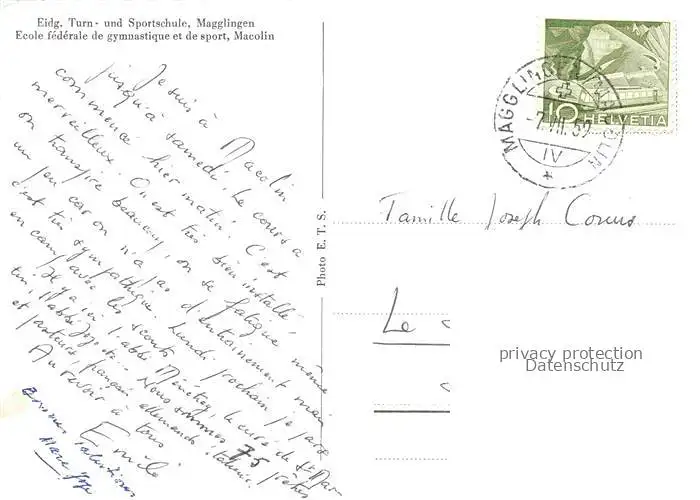 Eidg. Turn- und Sportschule, Magglingen
Ecole fédérale de gymnastique et de sport, Macolin
Je suis à Macolin
jusqu'à samedi. Le cours a
commencé hier matin. C'est
merveilleux. On est très bien installé.
on transpire beaucoup, on se fatigue même
un peu car on n'a pas d'entraînement mais
c'est très sympathique. Lundi prochain je pars
en camp avec les scouts.
Je y a ici l'abbé le curé de St Mar-
tin, l'abbé Nous sommes 75 prêtres
et pasteurs, français allemands
Au revoir à tous
Emile
Photo E. T. S.
MAGGLINGEN MACOLIN
-7.VII.52
IV
10 HELVETIA
Famille Joseph
Le
privacy protection
Datenschutz